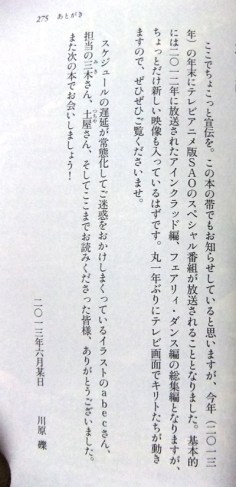 275　あとがき
ここでちょこっと宣伝を。この本の帯でもお知らせしていると思いますが、今年（二〇一三
年）の年末にテレビアニメ版ＳＡＯのスペシャル番組が放送されることとなりました。基本的
には二〇一二年に放送されたアインクラッド編、フェアリィ・ダンス編の総集編となりますが、
ちょっとだけ新しい映像も入っているはずです。丸一年ぶりにテレビ画面でキリトたちが動き
ますので、ぜひぜひご覧くださいませ。
スケジュールの遅延が常態化してご迷惑をおかけしまくっているイラストのａｂｅｃさん、
担当の三木さん、土屋さん、そしてここまでお読みくださった皆様、ありがとうございました。
また次の本でお会いしましょう！
二〇一三年六月某日
川原　礫